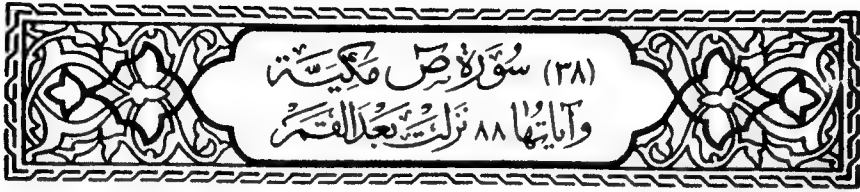 (٣٨) سُورَةُ صٓ مَكِيَّة
وَآيَاتُهَا ٨٨ نَزَلَتْ بَعْدَ القَمَر